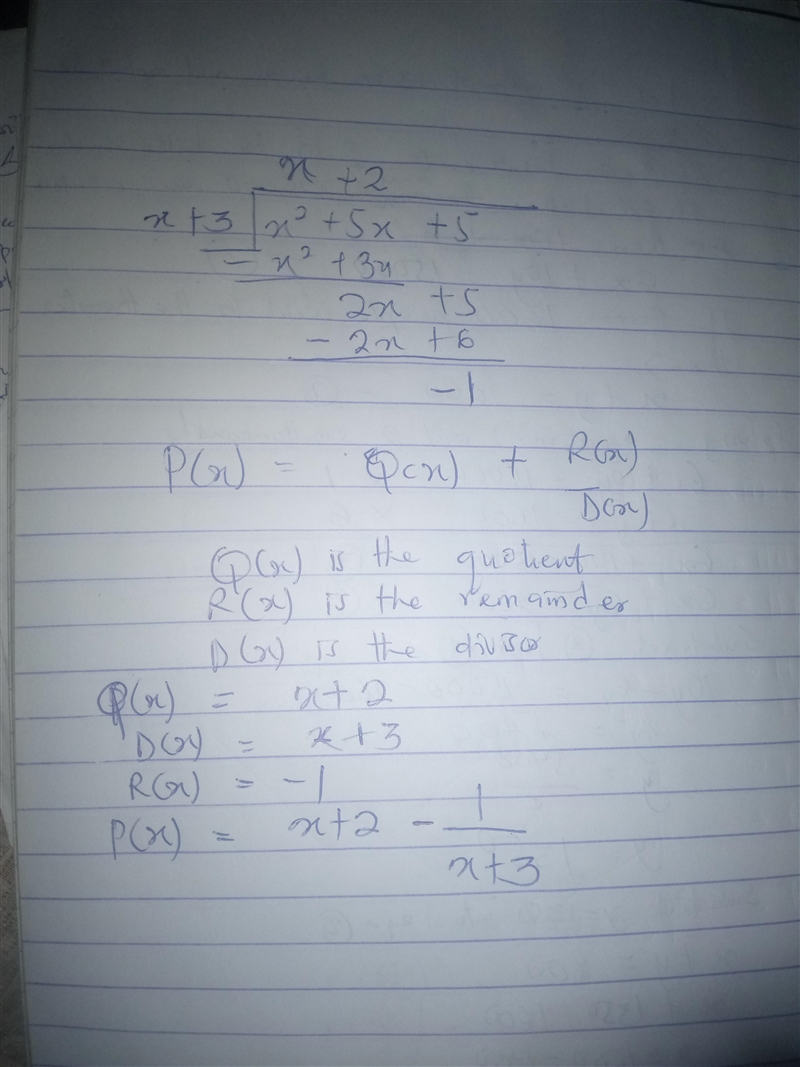 x + 2
x + 3 x² + 5x + 5
- x² + 3x
2x + 5
- 2x + 6
-1
P(x) = Q(x) + R(x)
D(x)
Q(x) is the quotient
R(x) is the remainder
D(x) is the diviso
Q(x) = x + 2
D(x) = x + 3
R(x) = -1
P(x) = x + 2 - 1
x + 3